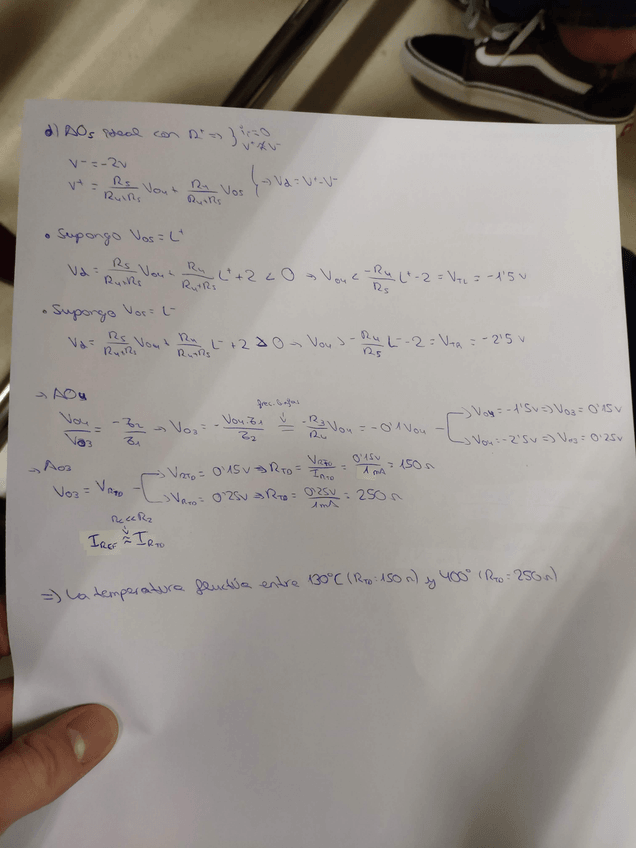 d) AO₅ ideal con R⁺ => } i=0
V⁺≠V⁻
V⁻ = -2v
V⁺ = R₅/(R₄+R₅) V₀₄ + R₄/(R₄+R₅) V₀₅ } → Vd = V⁺-V⁻
• Supongo V₀₅ = L⁺
Vd = R₅/(R₄+R₅) V₀₄ + R₄/(R₄+R₅) L⁺ + 2 < 0 → V₀₄ < -R₄/R₅ L⁺ - 2 = V_TL = -1'5 v
• Supongo V₀₅ = L⁻
Vd = R₅/(R₄+R₅) V₀₄ + R₄/(R₄+R₅) L⁻ + 2 > 0 → V₀₄ > -R₄/R₅ L⁻ - 2 = V_TR = -2'5 v
→ AO4
V₀₄/V₀₃ = -Z₂/Z₁ → V₀₃ = -V₀₄·Z₁/Z₂ = -R₃/R₄ V₀₄ = -0'1 V₀₄
V₀₄ = -1'5v => V₀₃ = 0'15v
V₀₄ = -2'5v => V₀₃ = 0'25v
→ AO3
V₀₃ = V_RTD
V_RTD = 0'15v => R_TD = V_RTD/I_RTD = 0'15v/1mA = 150 Ω
V_RTD = 0'25v => R_TD = 0'25v/1mA = 250 Ω
I_REF ≈ I_RTD
=> La temperatura fluctúa entre 130°C (R_TD = 150 Ω) y 400° (R_TD = 250 Ω)